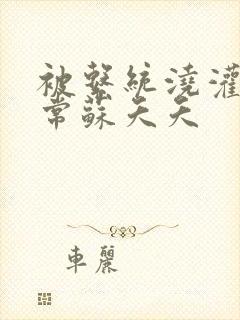 被繫統澆灌
常蘇夭夭
車麗